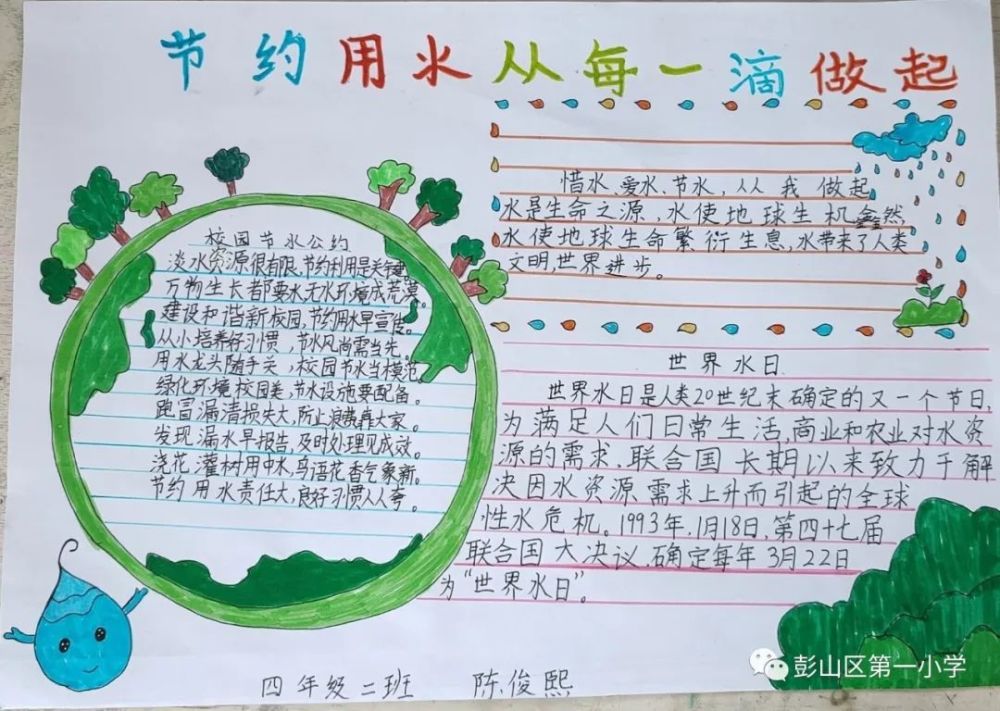 节约用水从每一滴做起
惜水、爱水、节水，从我做起
水是生命之源，水使地球生机盎然，
水使地球生命繁衍生息，水带来了人类
文明，世界进步。
校园节水公约
淡水资源很有限，节约利用是关键。
万物生长都要水，无水环境成荒漠。
建设和谐新校园，节约用水早宣传。
从小培养好习惯，节水风尚需当先。
用水龙头随手关，校园节水当模范。
绿化环境校园美，节水设施要配备。
跑冒漏清损失大，防止浪费靠大家。
发现漏水早报告，及时处理见成效。
浇花灌树用中水，鸟语花香气象新。
节约用水责任大，良好习惯人人夸。
世界水日
世界水日是人类20世纪末确定的又一个节日，
为满足人们日常生活，商业和农业对水资
源的需求，联合国长期以来致力于解
决因水资源需求上升而引起的全球
性水危机。1993年，1月18日，第四十七届
联合国大决议，确定每年3月22日
为“世界水日”。
四年级二班 陈俊熙
彭山区第一小学